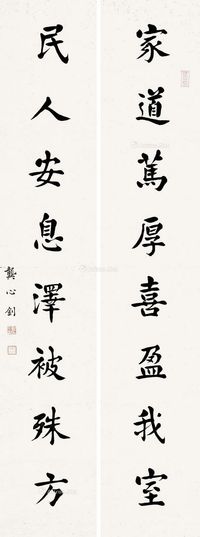 家道篤厚喜盈我室
民人安息澤被殊方
龔心釗